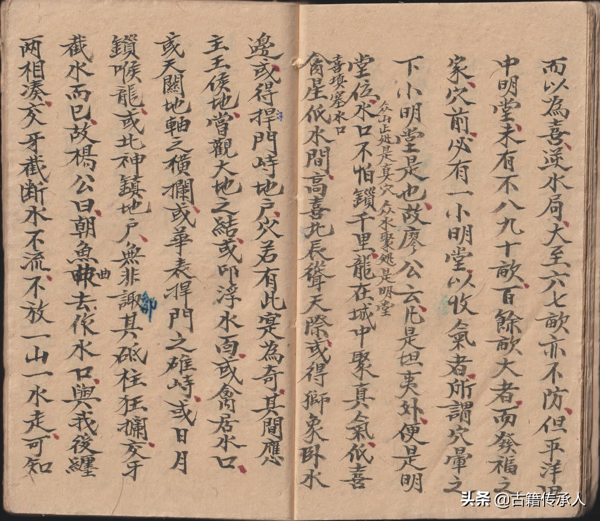 而以為喜逆水局大至六七畝亦不防但平洋
中明堂未有不八九十畝百餘畝大者而發福之
家穴前必有一小明堂以收氣者所謂穴暈之
下小明堂是也故廖公云凡是坦夷外便是明
堂位水口不怕鎖千里龍在城中聚真氣低喜
眾山止處是真穴眾水聚處是明堂
喜填塞水口
禽星低水間高喜北辰聳天際或得獅象臥水
邊或得捍門峙地戶穴若有此定為奇其間應
主王侯地當觀大地之結或印浮水面或禽居水口
或天關地軸之橫攔或華表捍門之雄峙或日月
鎖喉龍或北神鎮地戶無非謂其砥柱狂瀾交牙
截水而已故楊公曰朝魚曲去作水口與我後纏
兩相湊交牙截斷水不流不放一山一水走可知
头条 @古籍传承人